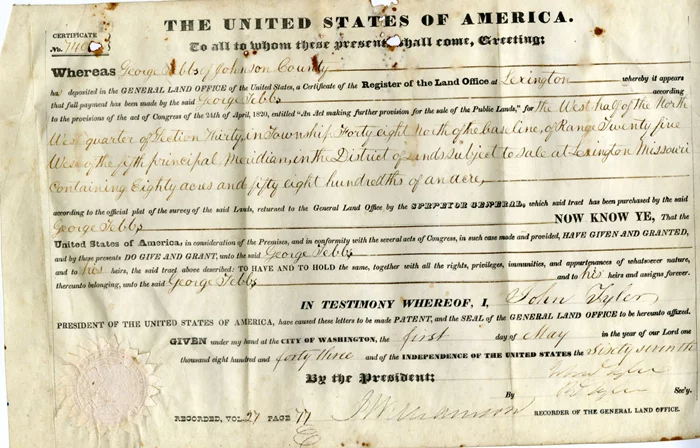 THE UNITED STATES OF AMERICA.
CERTIFICATE
No.
To all to whom these presents shall come, Greeting:
Whereas George Tebbs of Johnson County
ha deposited in the GENERAL LAND OFFICE of the United States, a Certificate of the Register of the Land Office at Lexington whereby it appears
that full payment has been made by the said George Tebbs according
to the provisions of the act of Congress of the 24th of April, 1820, entitled "An Act making further provision for the sale of the Public Lands," for The West half of the North
West quarter of Section Thirty, in Township Forty eight North of the base line, of Range Twenty five
West of the fifth principal Meridian, in the District of Lands Subject to Sale at Lexington Missouri
Containing Eighty acres and fifty eight hundredths of an acre,
according to the official plat of the survey of the said Lands, returned to the General Land Office by the SURVEYOR GENERAL, which said tract has been purchased by the said
George Tebbs NOW KNOW YE, That the
United States of America, in consideration of the Premises, and in conformity with the several acts of Congress, in such case made and provided, HAVE GIVEN AND GRANTED,
and by these presents DO GIVE AND GRANT, unto the said George Tebbs
and to his heirs, the said tract above described: TO HAVE AND TO HOLD the same, together with all the rights, privileges, immunities, and appurtenances of whatsoever nature,
thereunto belonging, unto the said George Tebbs and to his heirs and assigns forever.
IN TESTIMONY WHEREOF, I, John Tyler
PRESIDENT OF THE UNITED STATES OF AMERICA, have caused these letters to be made PATENT, and the SEAL of the GENERAL LAND OFFICE to be hereunto affixed.
GIVEN under my hand at the CITY OF WASHINGTON, the first day of May in the year of our Lord one
thousand eight hundred and forty three and of the INDEPENDENCE OF THE UNITED STATES the Sixty seventh
By the President: Tyler
By Tyler Sec'y.
RECORDED, VOL 27 PAGE 77 RECORDER OF THE GENERAL LAND OFFICE.